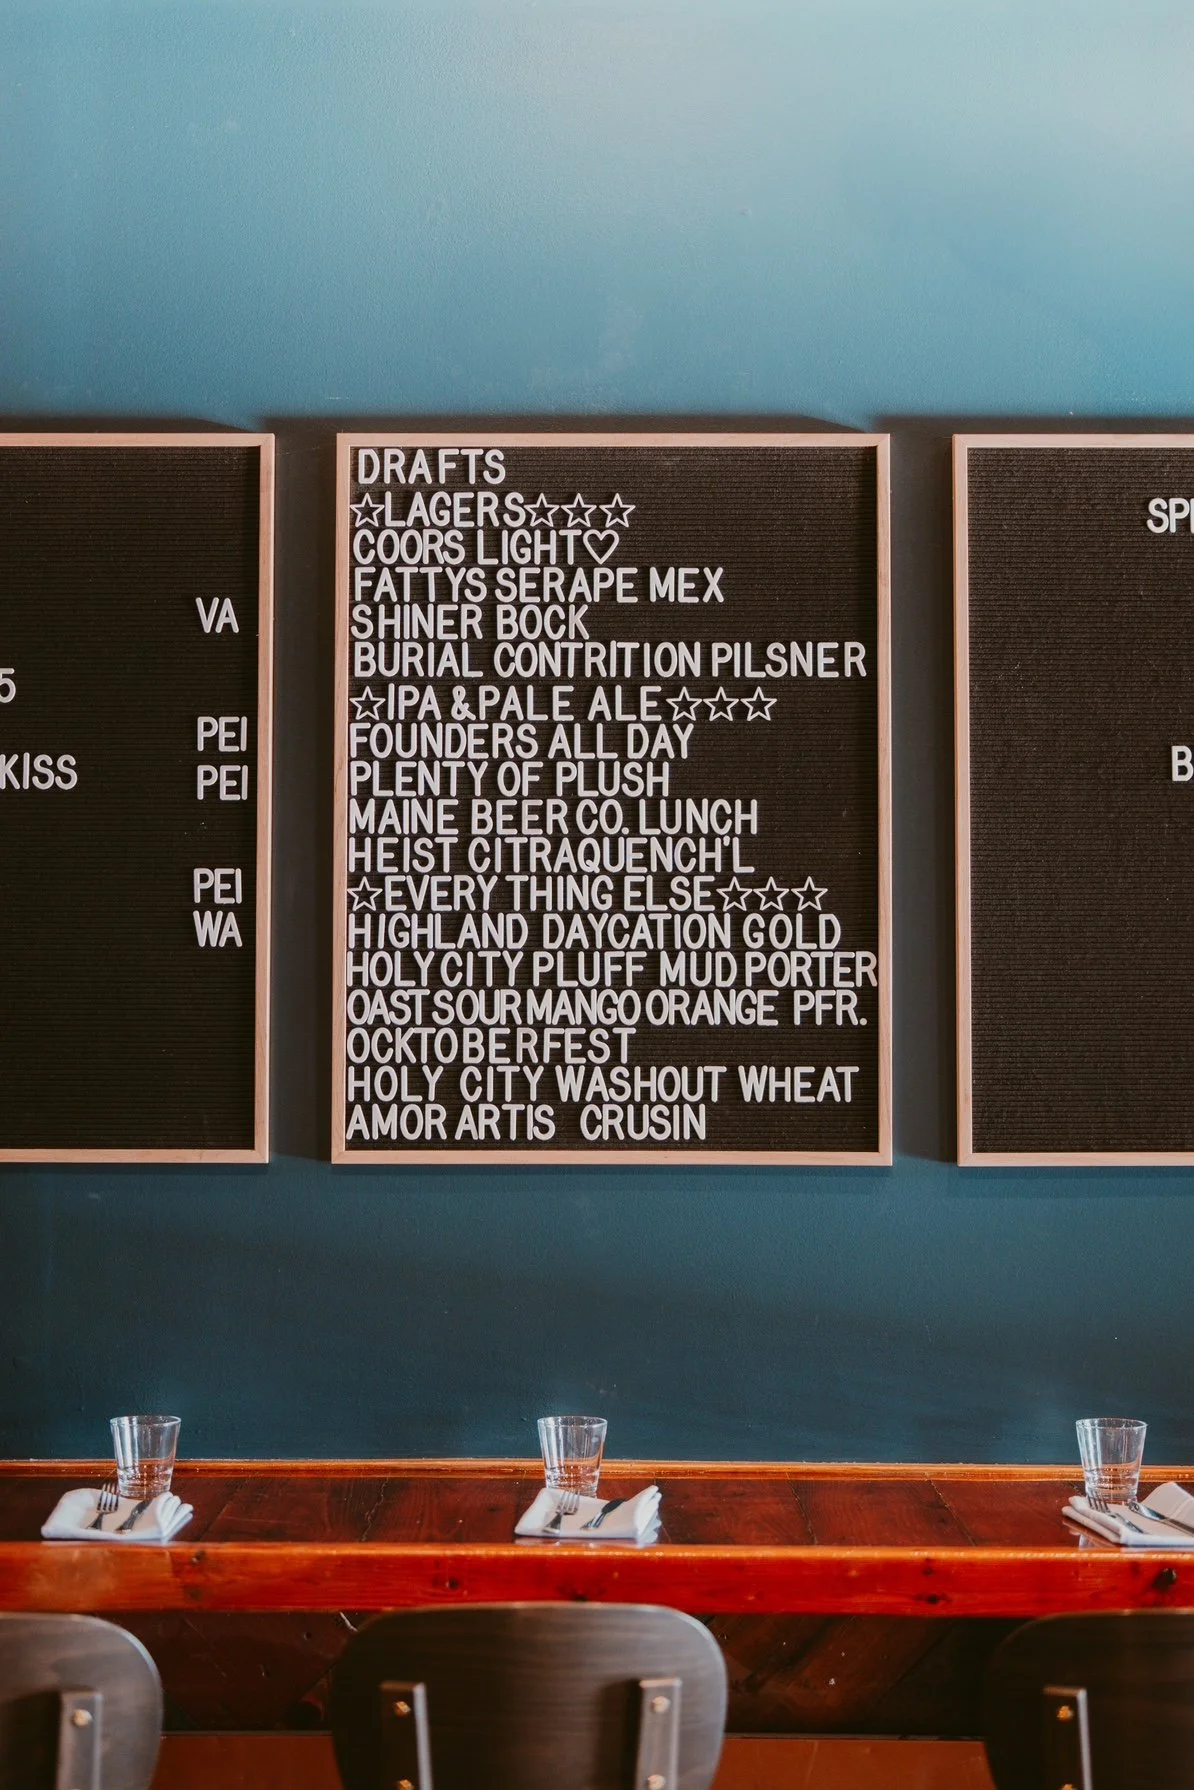 VA
5
PEI
KISS
PEI
PEI
WA
DRAFTS
☆LAGERS☆☆☆
COORS LIGHT♡
FATTYS SERAPE MEX
SHINER BOCK
BURIAL CONTRITION PILSNER
☆IPA &PALE ALE☆☆☆
FOUNDERS ALL DAY
PLENTY OF PLUSH
MAINE BEER CO. LUNCH
HEIST CITRAQUENCH'L
☆EVERY THING ELSE☆☆☆
HIGHLAND DAYCATION GOLD
HOLY CITY PLUFF MUD PORTER
OAST SOUR MANGO ORANGE PFR.
OCKTOBERFEST
HOLY CITY WASHOUT WHEAT
AMOR ARTIS CRUSIN
SP
B